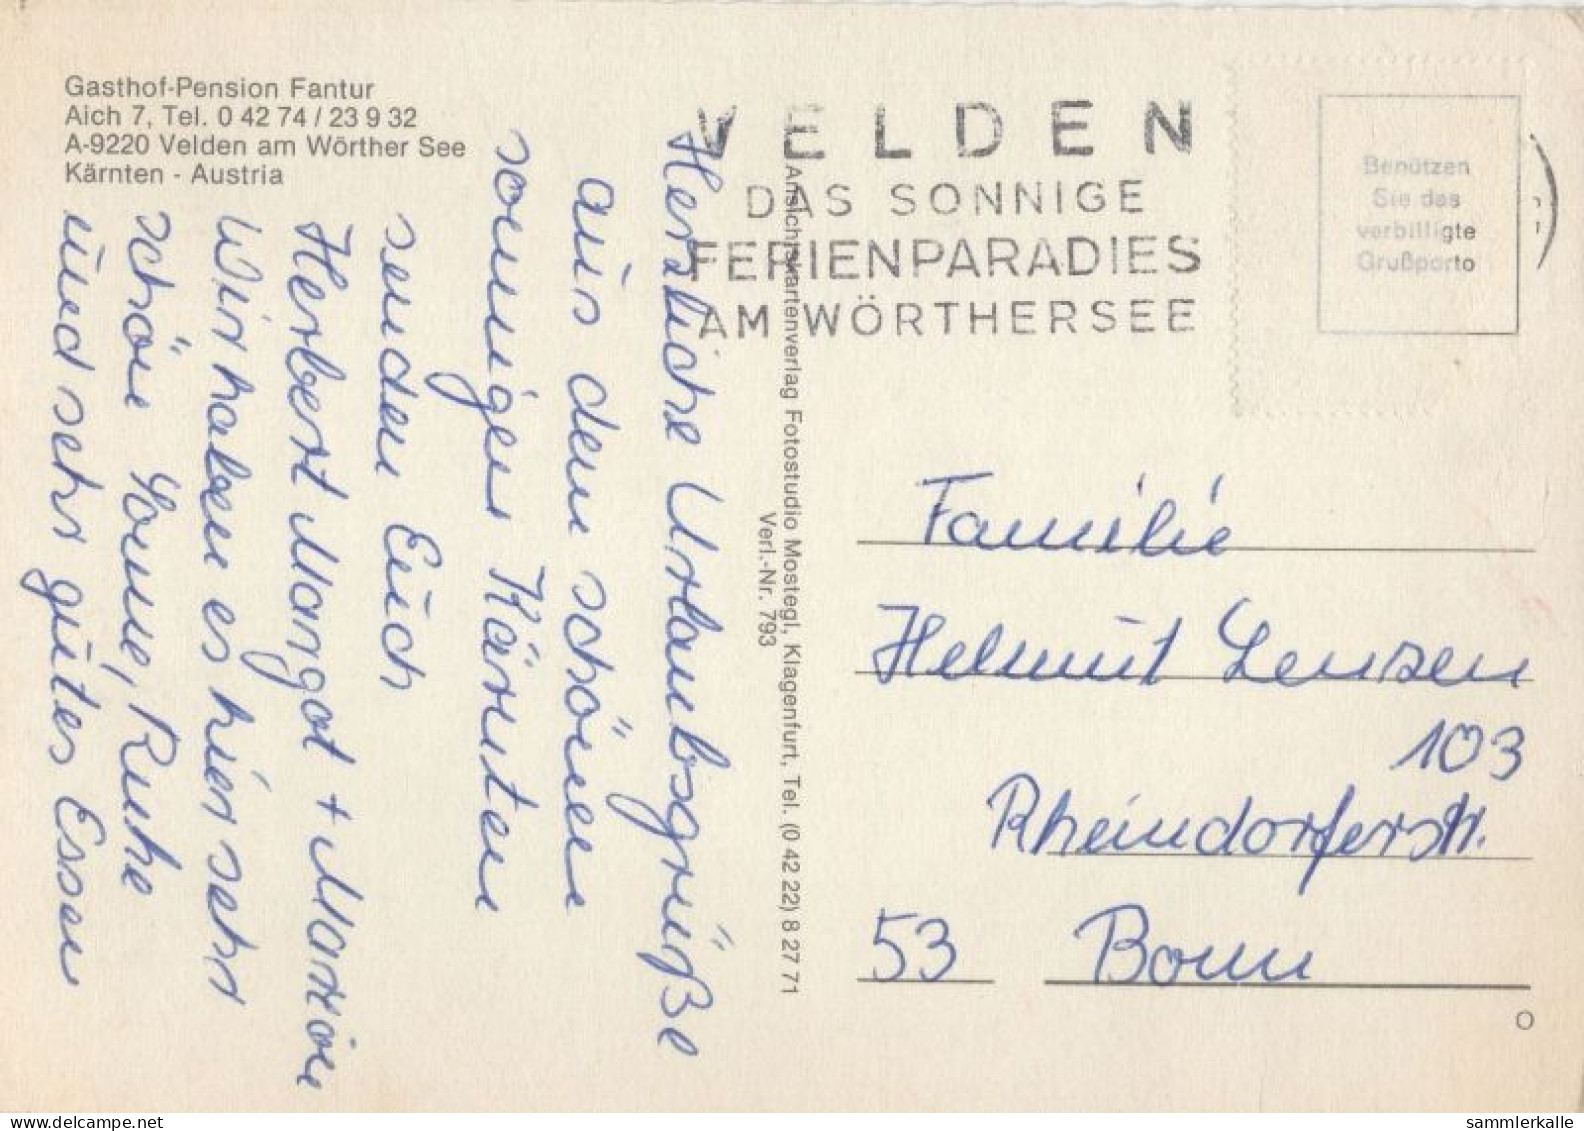 Gasthof-Pension Fantur
Aich 7, Tel. 0 42 74 / 23 9 32
A-9220 Velden am Wörther See
Kärnten - Austria
VELDEN
DAS SONNIGE
FERIENPARADIES
AM WÖRTHERSEE
Benützen
Sie das
verbilligte
Grußporto
Herzliche Urlaubsgrüße
aus dem schönen
sonnigen Kärnten
senden Euch
Herbert Margot + Marion
Wir haben es hier sehr
schön Sonne, Ruhe
und sehr gutes Essen
Ansichtskartenverlag Fotostudio Mostegl, Klagenfurt, Tel. (0 42 22) 8 27 71
Verl.-Nr. 793
Familie
Helmut Lenzen
103
Rheindorferstr.
53 Bonn
O
sammlerkalle
delcampe.net